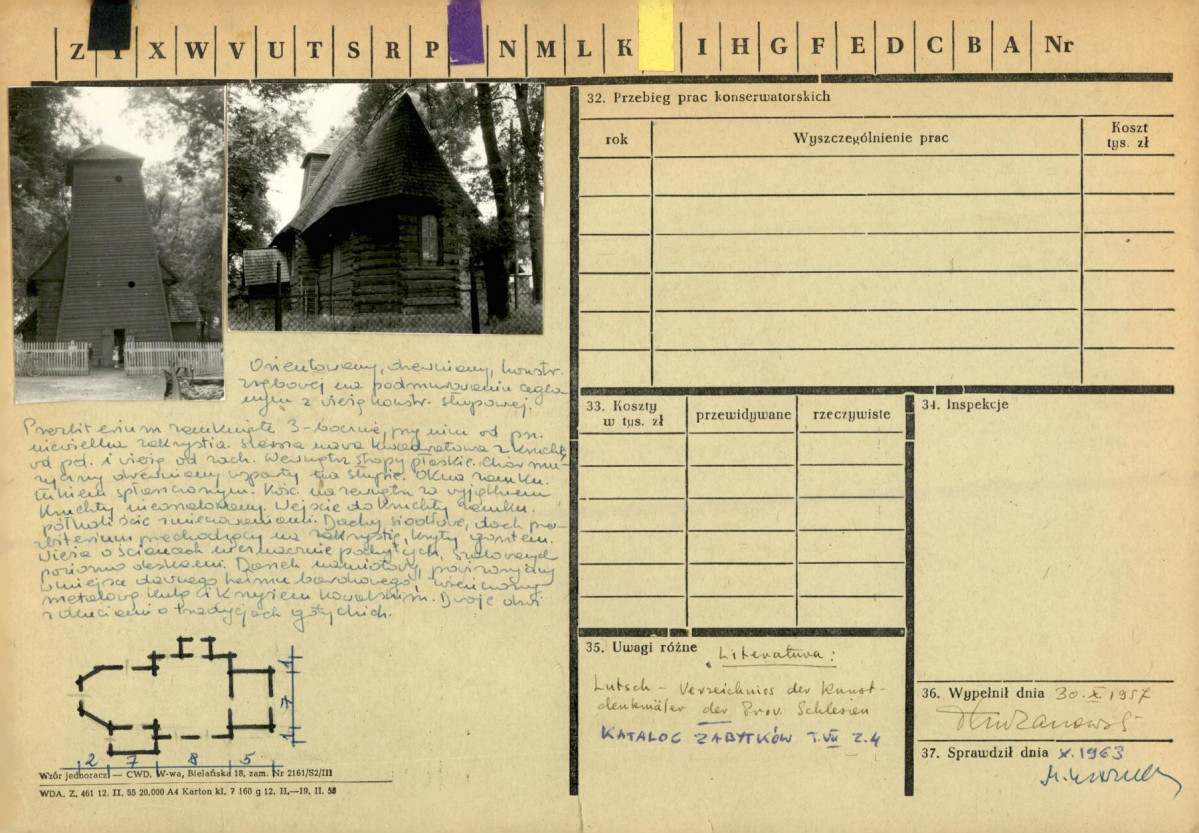 Z Y X W V U T S R P N M L K I H G F E D C B A Nr
Orientowany, drewniany, konstr.
zrębowej na podmurowaniu cegla
nym z wieżą konstr. słupowej.
Prezbiterium zamknięte 3-bocznie, przy nim od pn.
niewielka zakrystia. Szersza nawa kwadratowa z kruchtą
od pd. i wieżą od zach. Wewnątrz stropy płaskie. Chór mu-
zyczny drewniany wsparty na słupie. Okna zamkn.
łukiem spłaszczonym. Kość. na zewnątrz za wyjątkiem
kruchty nieoszalowany. Wejście do kruchty zamkn.
półkoliście z mieczowaniami. Dachy siodłowe, dach pre-
zbiterium przechodzący na zakrystię, kryty gontem.
Wieża o ścianach nieznacznie pochyłych, szalowanych
poziomo deskami. Daszek namiotowy, prowizoryczny
w miejsce dawnego hełmu barokowego, zwieńczony
metalową kulą i krzyżem kowalskim. Dwoje drzwi
z okuciami o tradycjach gotyckich.
1
7
1
2 7 8 5
Wzór jednoraz. — CWD. W-wa, Bielańska 18, zam. Nr 2161/S2/III
WDA. Z. 461 12. II. 55 20,000 A4 Karton kl. 7 160 g 12. II.—19. II. 55
32. Przebieg prac konserwatorskich
rok Wyszczególnienie prac Koszt tys. zł
33. Koszty w tys. zł przewidywane rzeczywiste
34. Inspekcje
35. Uwagi różne
Literatura:
Lutsch - Verzeichniss der Kunst-
denkmäler der Prov. Schlesien
KATALOG ZABYTKÓW T. VII Z. 4
36. Wypełnił dnia 30.X.1957
37. Sprawdził dnia X.1963